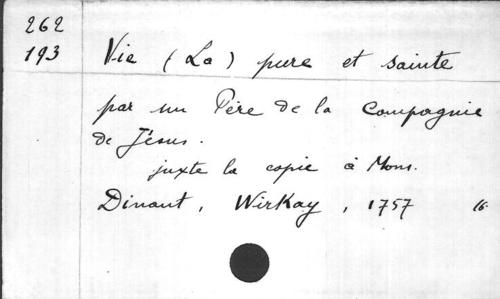 262
193
Vie (La) pure et sainte
par un Père de la Compagnie
de Jésus.
juxte la copie à Mons.
Dinant, Wirkay, 1757 16.